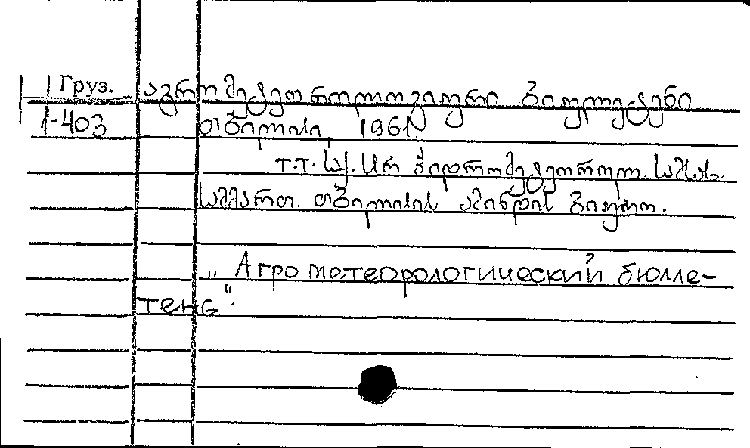 Груз. აგრომეტეოროლოგიური ბიულეტენი
1-403 თბილისი, 1961
თ.თ. საქ. სსრ ჰიდრომეტეოროლ. სამსახ.
სამმართ. თბილისის ამინდის ბიურო.
„Агрометеорологический бюлле-
тень".